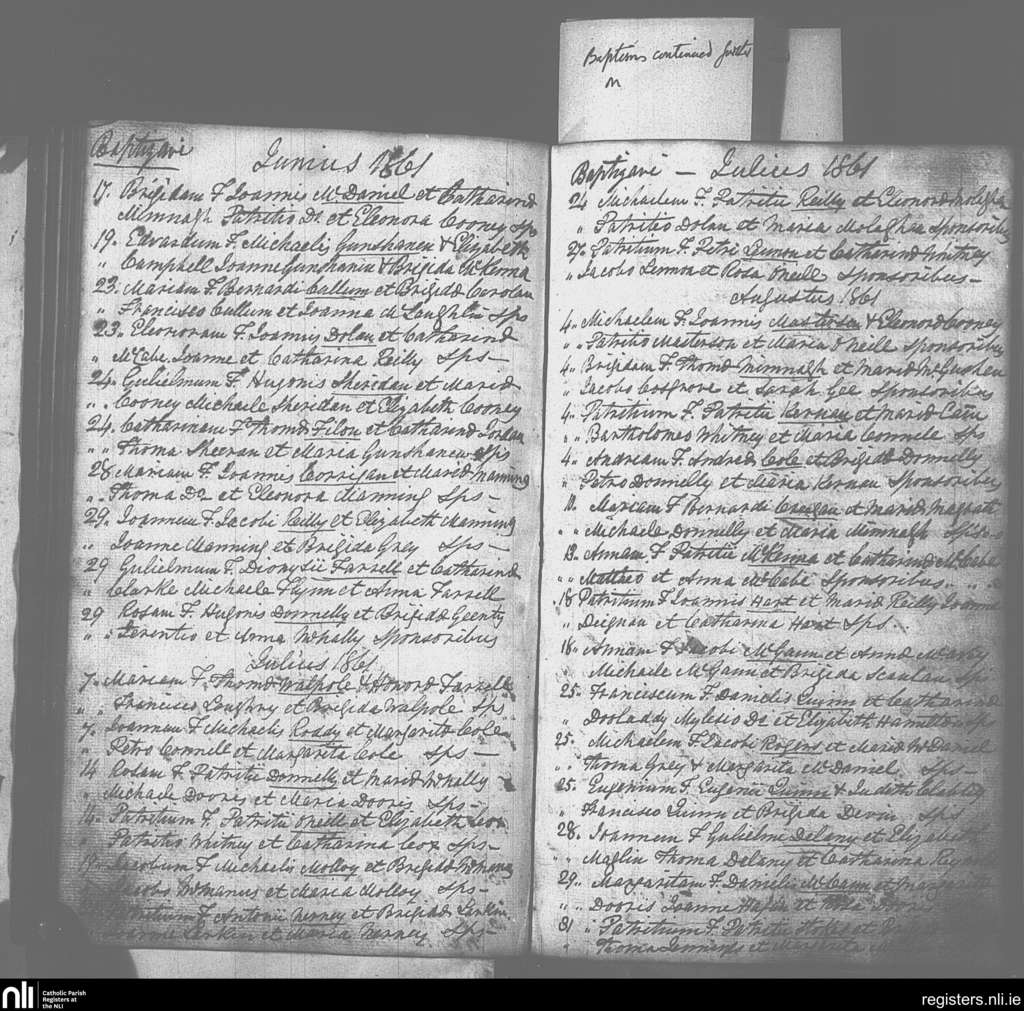 Baptisms continued further
on
Baptizavi
Junius 1861
17. Brigidam F. Joannis McDaniel et Catharina
Mimnagh Patritio Do. et Eleonora Cooney Sps
19. Edvardum F. Michaelis Gunshanen & Elizabeth
" Campbell Joanne Gunshanen & Brigida McKenna
23. Mariam F. Bernardi Cullum et Brigida Carolan
" Francisco Cullum et Joanna McLaughlin Sps
23. Eleonoram F. Joannis Dolan et Catharina
" McCabe Joanne et Catharina Reilly Sps -
24. Gulielmum F. Hugonis Sheridan et Maria
" . Cooney Michaele Sheridan et Elizabeth Cooney
24. Catharinam F. Thomae Filon et Catharina Jordan
" " Thoma Sheeran et Maria Gunshanen Sps
28 Mariam F. Joannis Corrigan et Maria Manning
" . Thoma Do. et Eleonora Manning Sps -
29. Joannem F. Jacobi Reilly et Elizabeth Manning
" Joanne Manning et Brigida Grey Sps -
29 Gulielmum F. Dionysii Farrell et Catharina
" Clarke Michaele Flynn et Anna Farrell
29 Rosam F. Hugonis Donnelly et Brigida Geenty
" . Terentio et Anna McNally Sponsoribus
Julius 1861
7. Mariam F. Thomae Walpole & Honora Farrell
" Francisco Loughry et Brigida Walpole Sps
7. Joannem F. Michaelis Roddy et Margarita Cole
" Petro Connelle et Margarita Cole Sps -
14 Rosam F. Patritii Donnelly et Maria McNally
" Michaele Dooris et Maria Dooris Sps -
14. Patritium F. Patritii O'Neill et Elizabeth Cox
" Patritio Whitney et Catharina Cox Sps -
Jacobum F. Michaelis Molloy et Brigida McManus
Jacobo McManus et Maria Molloy Sps -
Patritium F. Antonii Nerney et Brigida Larkin
Joanne Larkin et Maria Nerney Sps -
Baptizavi - Julius 1861
24 Michaelem F. Patritii Reilly et Eleonora
" Patritio Dolan et Maria Sponsoribus
27. Patritium F. Petri Lennon et Catharina Whitney
" Jacobo Lennon et Rosa O'Neill Sponsoribus -
Augustus 1861
4. Michaelem F. Joannis Masterson & Eleonora Cooney
" . Patritio Masterson et Maria O'Neill Sponsoribus
4. Brigidam F. Thomae Mimnagh et Maria
" Jacobo Cosgrove et Sarah Gee Sponsoribus
4. Patritium F. Patritii Kernan et Maria
" . Bartholomeo Whitney et Maria Connele Sps
4. Andream F. Andreae Cole et Brigida Donnelly
" Petro Donnelly et Maria Kernan Sponsoribus
10. Mariam F. Bernardi et Maria Magrath
" Michaele Donnelly et Maria Mimnagh Sps
13. Annam F. Patritii McKenna et Catharina McCabe
" " Mattheo et Anna McCabe Sponsoribus
18 Patritium F. Joannis Hart et Maria Reilly Joanne
" Deignan et Catharina Hart Sps
18. Annam F. Jacobi McGann et Anna
Michaele McGann et Brigida Scanlan Sps
25. Franciscum F. Danielis Quinn et Catharina
" Dooladdy Mylesio Do. et Elizabeth Hamilton Sps
25. Michaelem F. Jacobi Rogers et Maria McDaniel
" . Thoma Grey & Margarita McDaniel Sps -
25. Eugenium F. Eugenii Quinn & Judith
" Francisco Quinn et Brigida Devin Sps
28. Joannem F. Gulielmi Delany et Elizabeth
" " Maglin Thoma Delany et Catharina
29. Margaritam F. Danielis McCann et Margarita
" " Dooris Joanne et
31 " Patritium F. Patritii et
" Thoma Jennings et Margarita
nli
Catholic Parish
Registers at
the NLI
registers.nli.ie